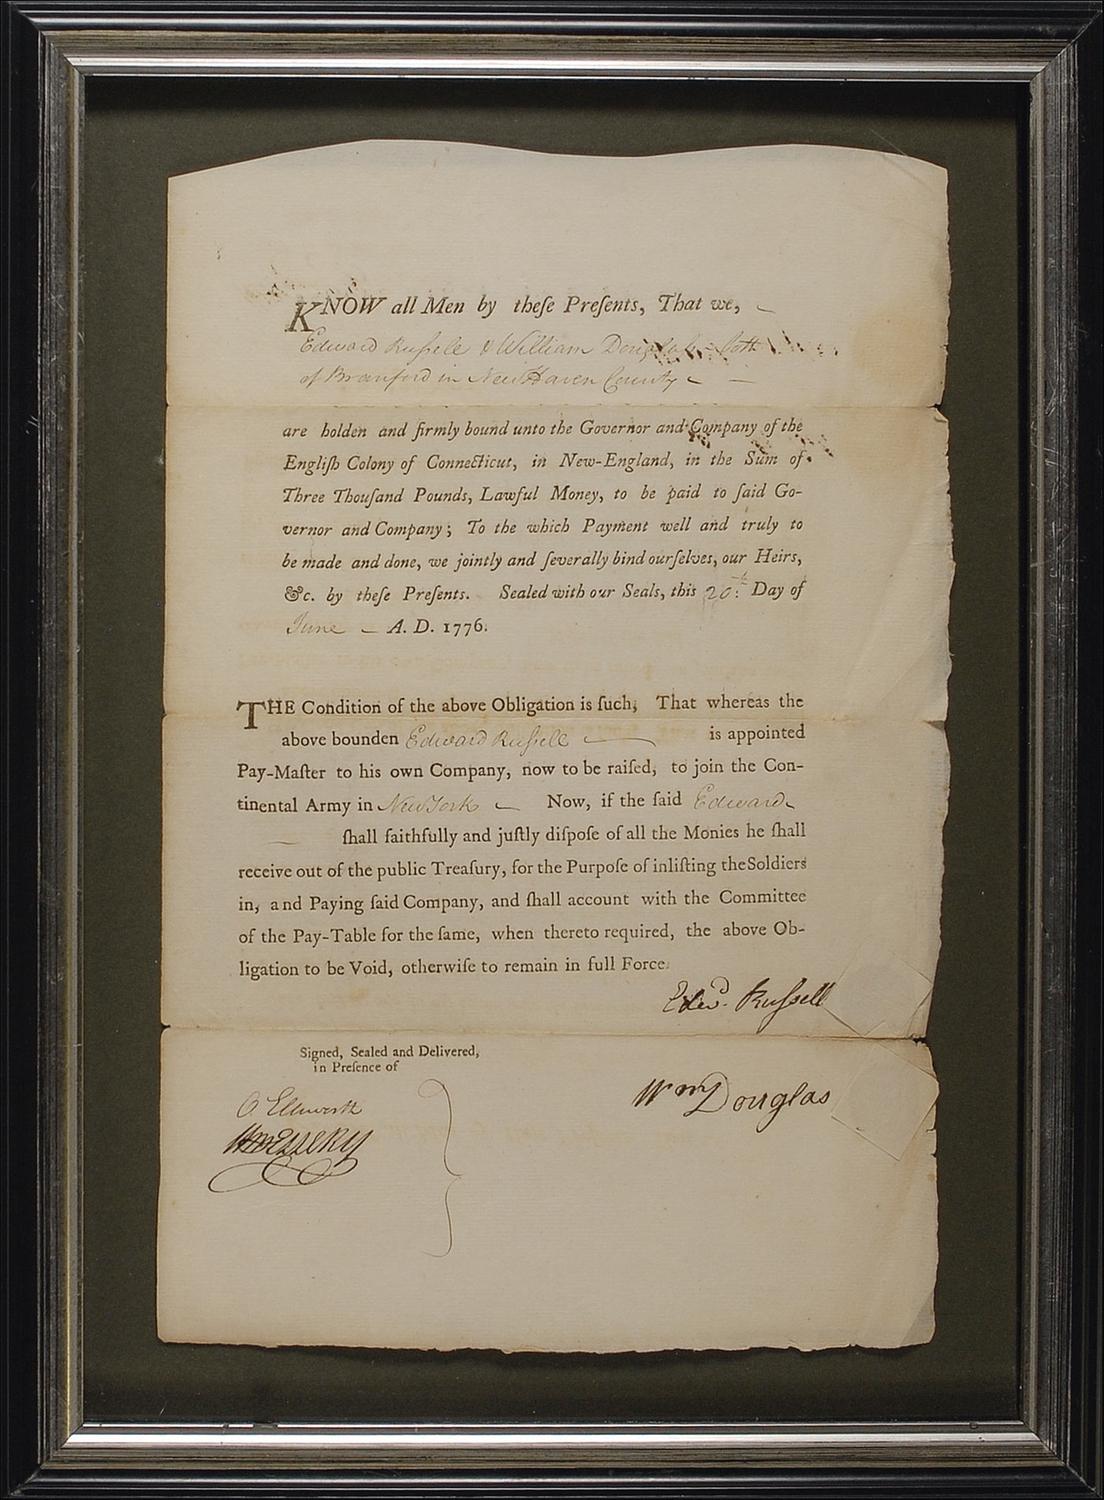 KNOW all Men by theſe Preſents, That we,
Edward Ruſsell & William Douglas both
of Branford in New Haven County
are holden and firmly bound unto the Governor and Company of the
Engliſh Colony of Connecticut, in New-England, in the Sum of
Three Thouſand Pounds, Lawful Money, to be paid to ſaid Go-
vernor and Company; To the which Payment well and truly to
be made and done, we jointly and ſeverally bind ourſelves, our Heirs,
&c. by theſe Preſents. Sealed with our Seals, this 20th Day of
June A. D. 1776.
THE Condition of the above Obligation is ſuch, That whereas the
above bounden Edward Ruſsell is appointed
Pay-Maſter to his own Company, now to be raiſed, to join the Con-
tinental Army in New York Now, if the ſaid Edward
ſhall faithfully and juſtly diſpoſe of all the Monies he ſhall
receive out of the public Treaſury, for the Purpoſe of inliſting the Soldiers
in, and Paying ſaid Company, and ſhall account with the Committee
of the Pay-Table for the ſame, when thereto required, the above Ob-
ligation to be Void, otherwiſe to remain in full Force.
Edwd. Ruſsell
Signed, Sealed and Delivered,
in Preſence of
O Ellsworth
Wm Douglas